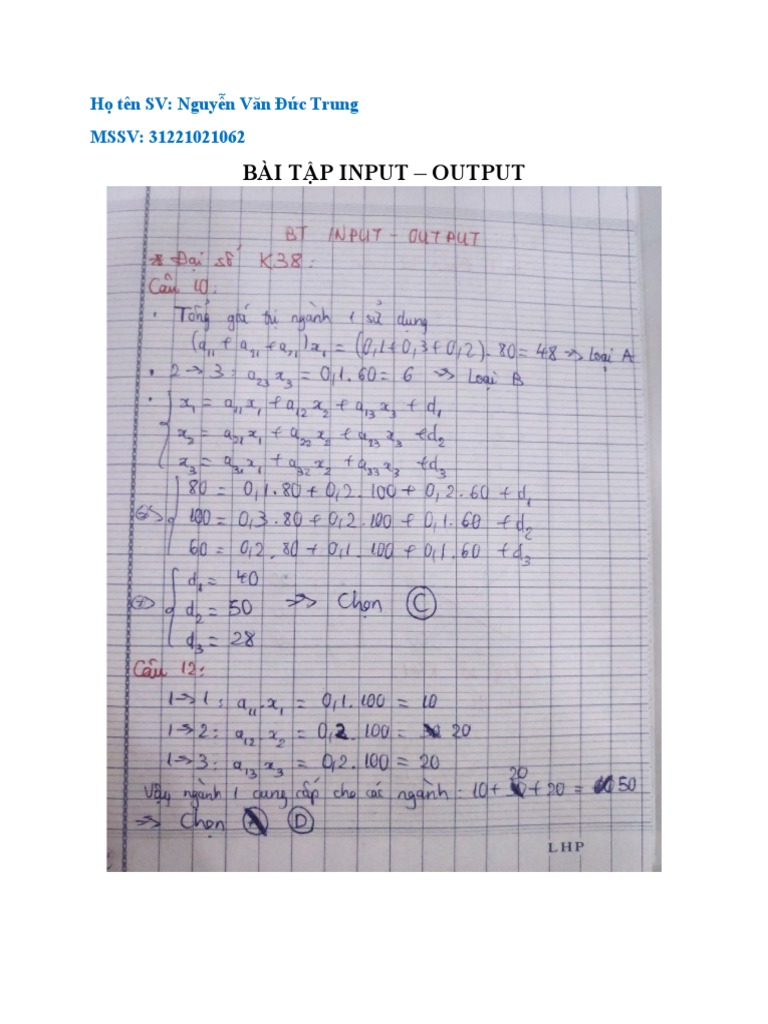 Họ tên SV: Nguyễn Văn Đức Trung
MSSV: 31221021062
BÀI TẬP INPUT – OUTPUT
BT INPUT - OUTPUT
* Đại số K38:
Câu 10:
• Tổng giá trị ngành 1 sử dụng
(a₁₁ + a₂₁ + a₂₁)x₁ = (0,1+0,3+0,2).80 = 48 => Loại A
• 2 -> 3: a₂₃x₃ = 0,1.60 = 6 => Loại B
• { x₁ = a₁₁x₁ + a₁₂x₂ + a₁₃x₃ + d₁
x₂ = a₂₁x₁ + a₂₂x₂ + a₂₃x₃ + d₂
x₃ = a₃₁x₁ + a₃₂x₂ + a₃₃x₃ + d₃
{ 80 = 0,1.80 + 0,2.100 + 0,2.60 + d₁
<=> 100 = 0,3.80 + 0,2.100 + 0,1.60 + d₂
60 = 0,2.80 + 0,1.100 + 0,1.60 + d₃
{ d₁ = 40
<=> d₂ = 50 => Chọn C
d₃ = 28
Câu 12:
1 -> 1: a₁₁.x₁ = 0,1.100 = 10
1 -> 2: a₁₂.x₂ = 0,2.100 = 20
1 -> 3: a₁₃x₃ = 0,2.100 = 20
Vậy ngành 1 cung cấp cho các ngành: 10 + 20 + 20 = 50
=> Chọn D
LHP